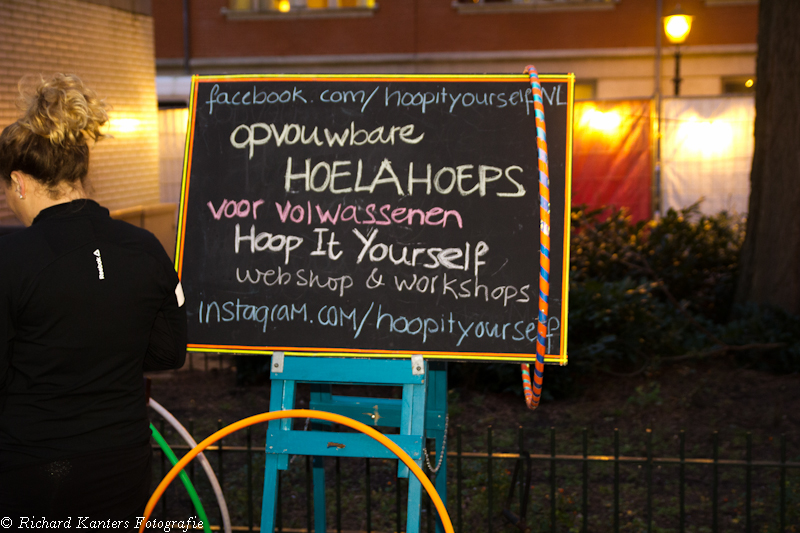 facebook.com/hoopityourselfNL
opvouwbare
HOELAHOEPS
voor volwassenen
Hoop It Yourself
webshop & workshops
instagram.com/hoopityourself
Reebok
© Richard Kanters Fotografie